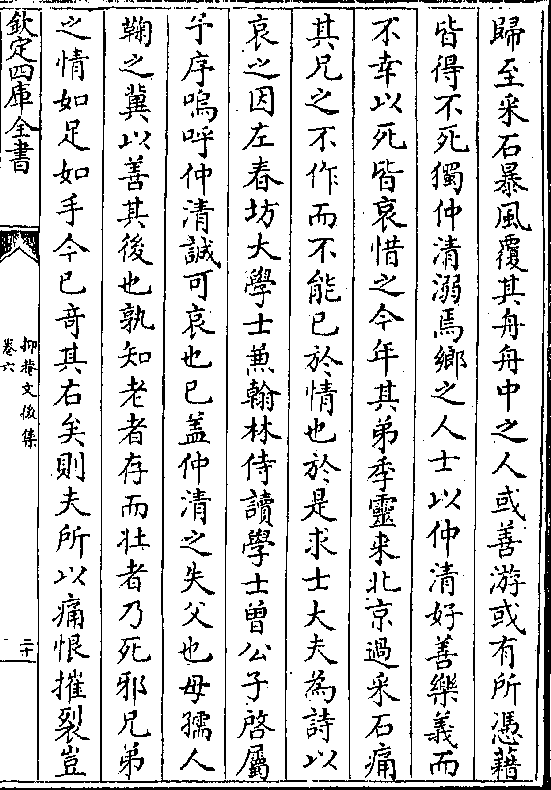 歸至采石暴風覆其舟舟中之人或善游或有所憑藉
皆得不死獨仲清溺焉鄉之人士以仲清好善樂義而
不幸以死皆哀惜之今年其弟季靈来北京過采石痛
其兄之不作而不能已於情也於是求士大夫為詩以
哀之因左春坊大學士兼翰林侍讀學士曾公子啓屬
予序嗚呼仲清誠可哀也已盖仲清之失父也母孺人
鞠之冀以善其後也孰知老者存而壯者乃死邪兄弟
之情如足如手今已奇其右矣則夫所以痛恨摧裂豈
欽定四庫全書
抑菴文後集
卷六
二十